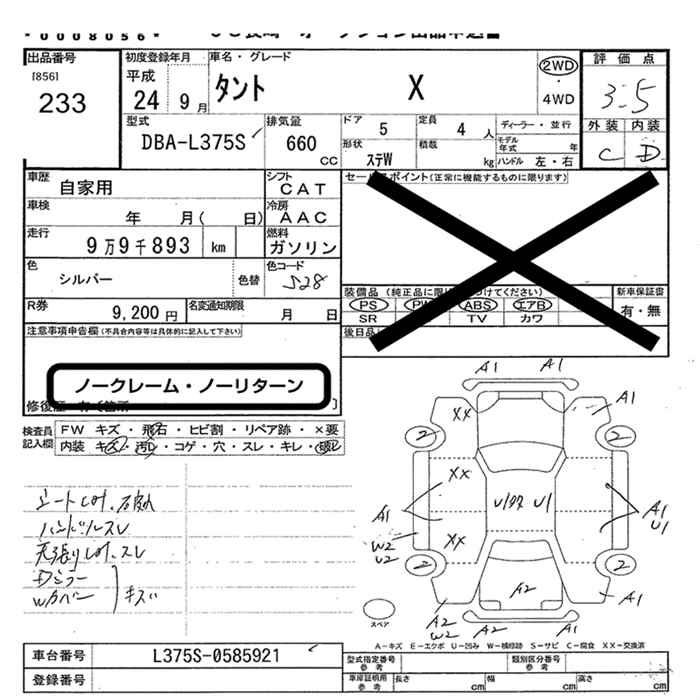 *0008056*
出品番号
[856]
233
初度登録年月
平成
24 9 月
車名・グレード
タント X
2WD
・
4WD
評価点
3.5
外装 内装
C D
型式
DBA-L375S
排気量
660
CC
ドア 5
定員 4 人
形状 ステW
積載 kg
ディーラー・並行
モデル年式 年
ハンドル 左・右
車歴
自家用
シフト
CAT
車検
年 月( 日)
冷房
AAC
走行
9万9千893 km
燃料
ガソリン
色
シルバー
色替
色コード
S28
R券
9,200 円
名変通知期限
月 日
セールスポイント(正常に機能するものに限ります)
PS PW ABS エアB
SR TV カワ
新車保証書
有・無
後日品
注意事項申告欄(不具合内容等は具体的に記入して下さい)
ノークレーム・ノーリターン
検査員
記入欄
FW キズ・飛石・ヒビ割・リペア跡・×要
内装 キズ・汚レ・コゲ・穴・スレ・キレ・破レ
ハンドルスレ
天張りしみ、スレ
Dミラー
Wカバー
キズ
A1 A1
XX A1
2 2
XX
A1 U1 A1
U1
W2
U2
XX
2 2
A2
A2 W2 A2 A2 A1
スペア
A-キズ E-エクボ U-凹み W-補修跡 S-サビ C-腐食 XX-交換済
車台番号 L375S-0585921
登録番号
型式指定番号
参考
類別区分番号
参考
車庫証明用
参考
長さ cm 幅 cm 高さ cm